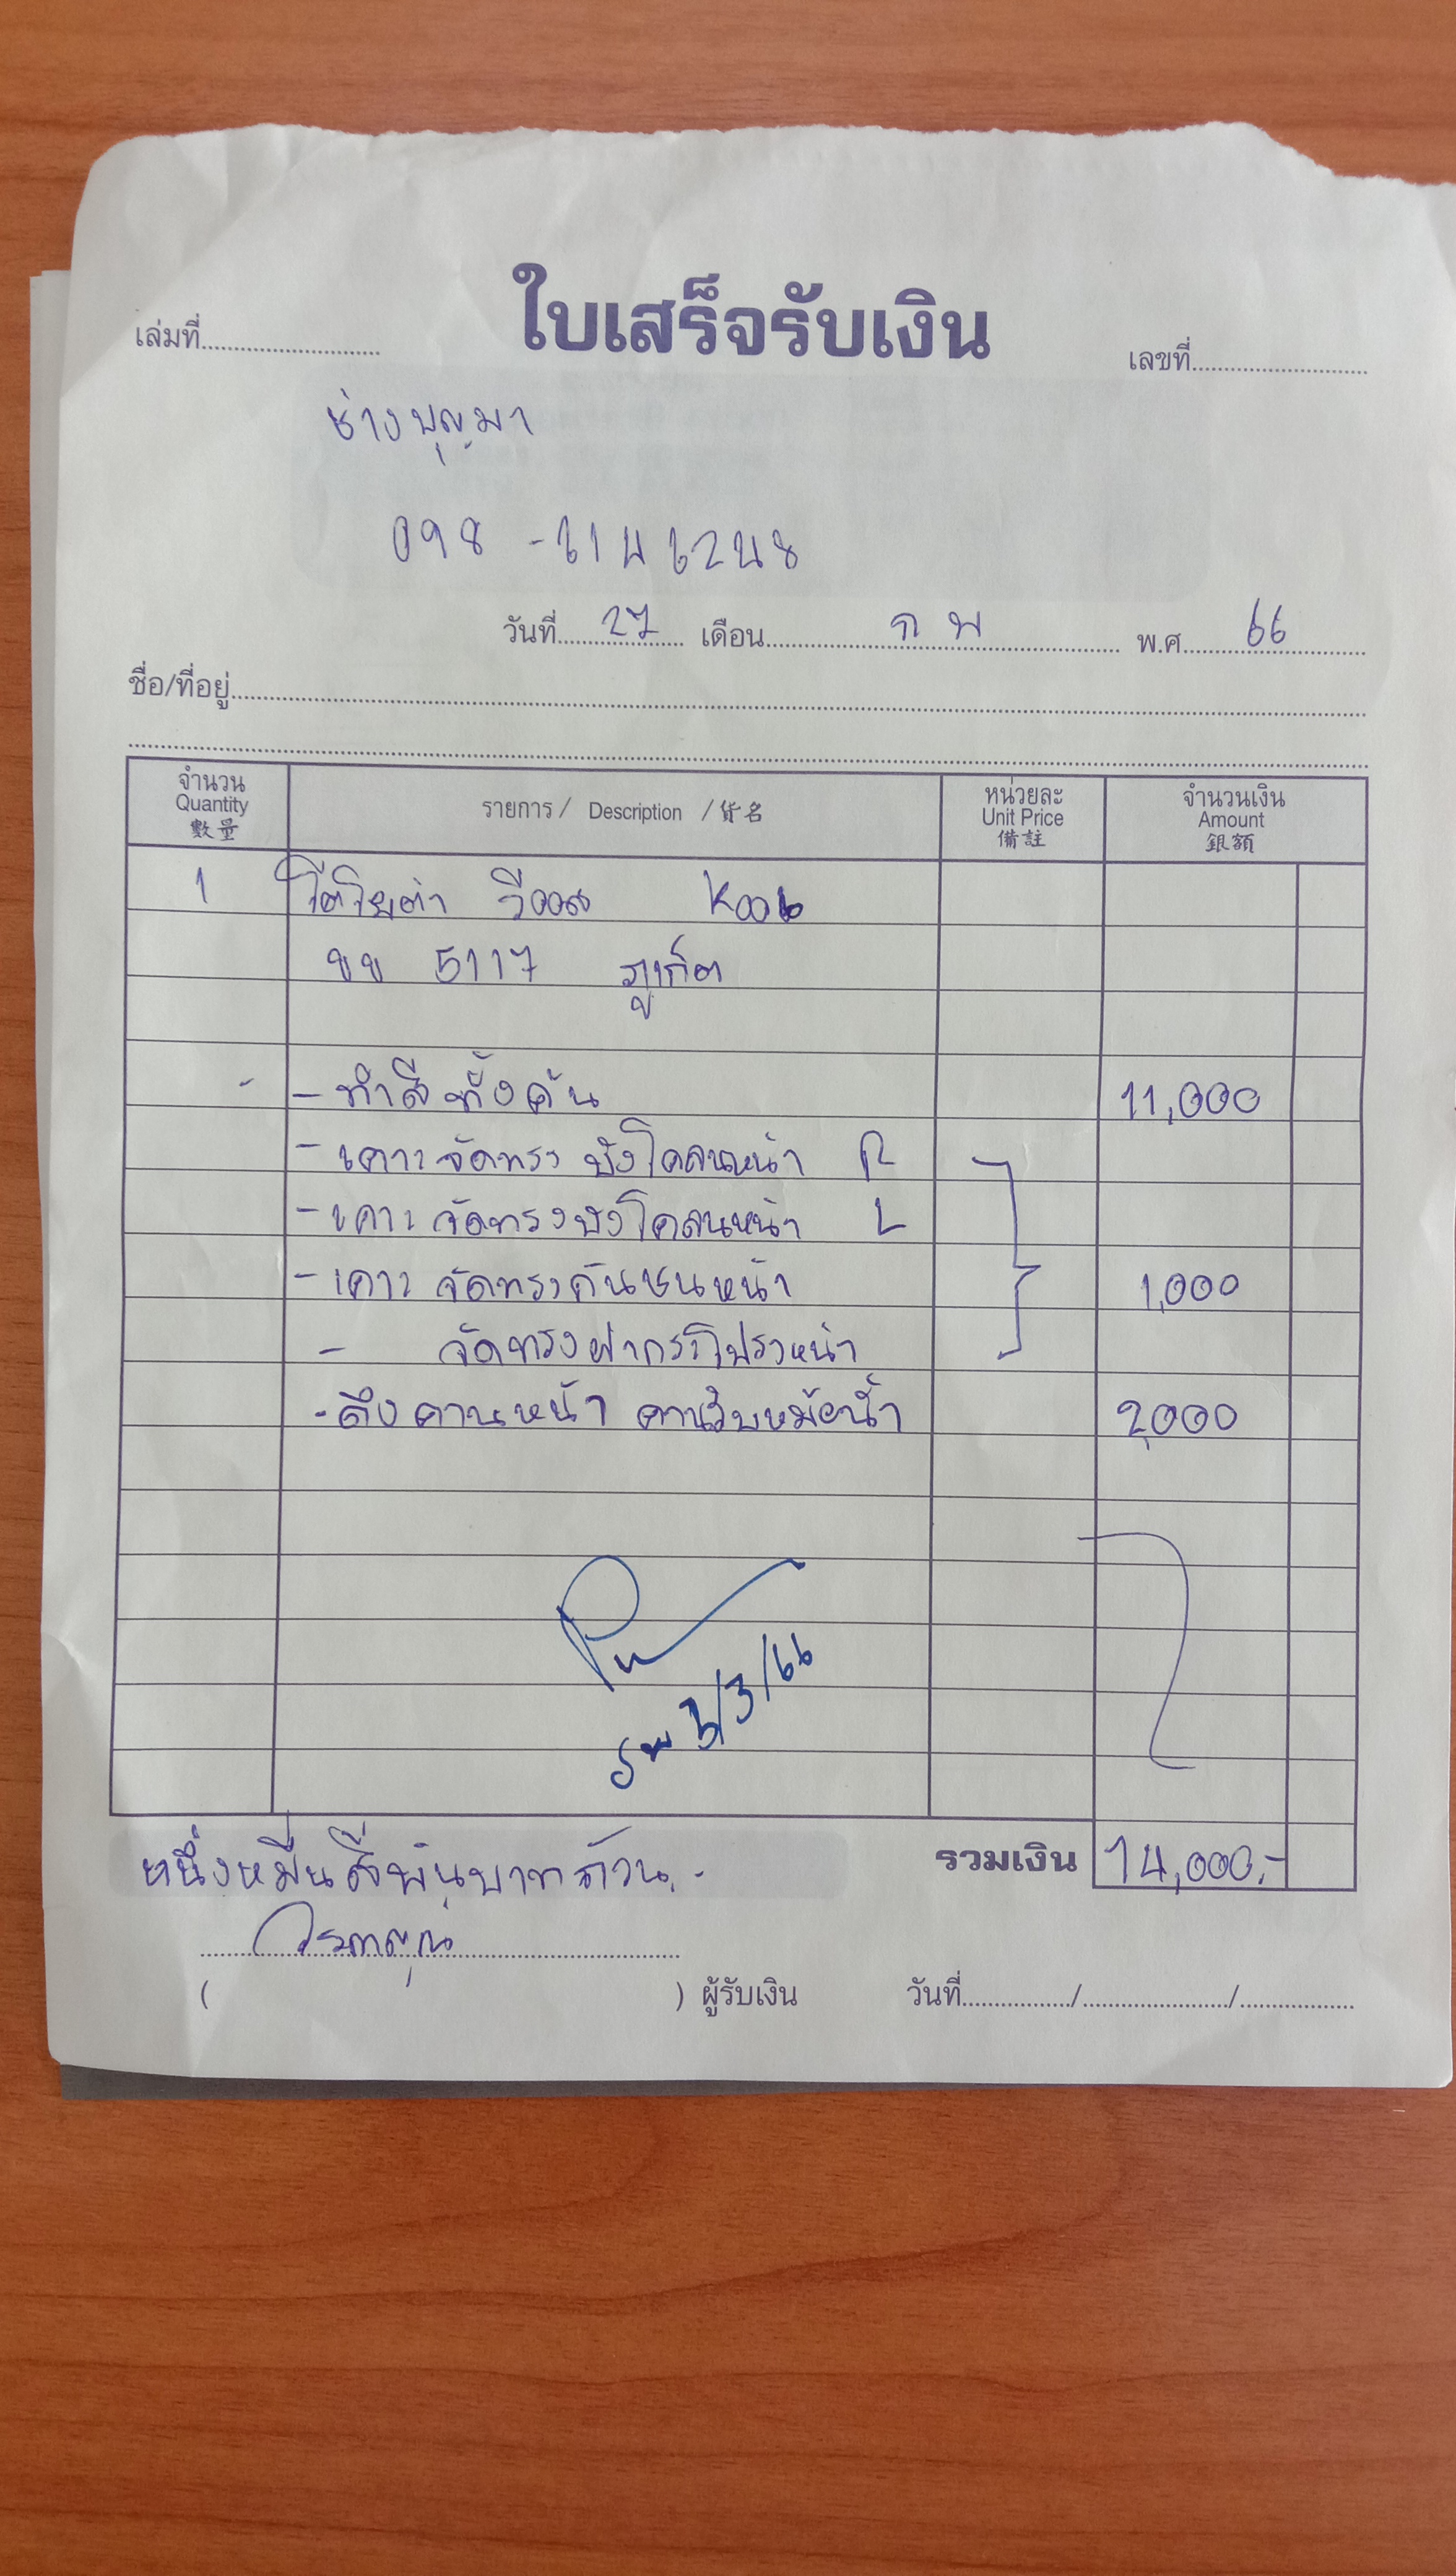 ใบเสร็จรับเงิน
เล่มที่ เลขที่
ช่างบุญมา
098 - 6146248
วันที่ 27 เดือน ก พ พ.ศ. 66
ชื่อ/ที่อยู่
จำนวน Quantity 數量 รายการ / Description / 貨名 หน่วยละ Unit Price 備註 จำนวนเงิน Amount 銀額
1 โตโยต้า วีออส K006
ขข 5117 ภูเก็ต
- - ทำสีทั้งคัน 11,000
- เคาะจัดทรง บังโคลนหน้า R
- เคาะ จัดทรงบังโคลนหน้า L
- เคาะ จัดทรงกันชนหน้า 1,000
- จัดทรงฝากระโปรงหน้า
- ดึงคานหน้า คานรับหม้อน้ำ 2,000
3/3/66
หนึ่งหมื่นสี่พันบาทถ้วน.- รวมเงิน 14,000.-
( ) ผู้รับเงิน วันที่ / /